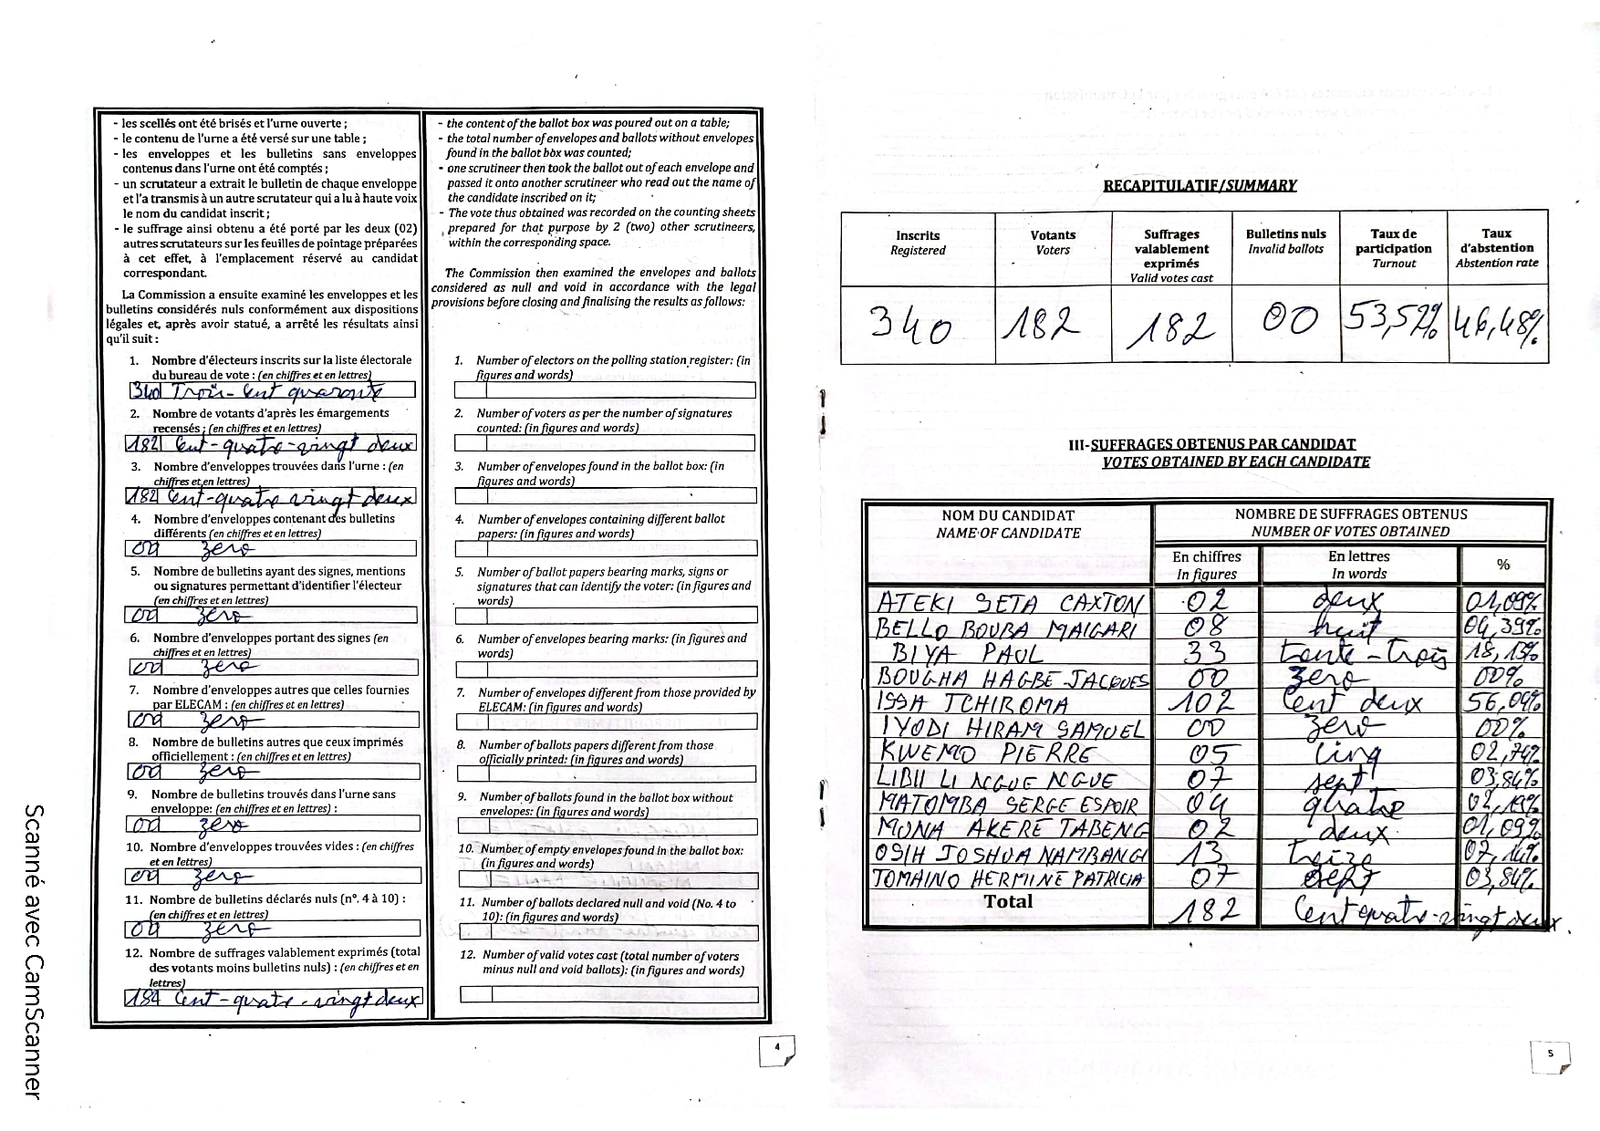 - les scellés ont été brisés et l'urne ouverte ;
- le contenu de l'urne a été versé sur une table ;
- les enveloppes et les bulletins sans enveloppes
contenus dans l'urne ont été comptés ;
- un scrutateur a extrait le bulletin de chaque enveloppe
et l'a transmis à un autre scrutateur qui a lu à haute voix
le nom du candidat inscrit ;
- le suffrage ainsi obtenu a été porté par les deux (02)
autres scrutateurs sur les feuilles de pointage préparées
à cet effet, à l'emplacement réservé au candidat
correspondant.
La Commission a ensuite examiné les enveloppes et les
bulletins considérés nuls conformément aux dispositions
légales et, après avoir statué, a arrêté les résultats ainsi
qu'il suit :
1. Nombre d'électeurs inscrits sur la liste électorale
du bureau de vote : (en chiffres et en lettres)
340 Trois-Cent quarante
2. Nombre de votants d'après les émargements
recensés : (en chiffres et en lettres)
182 Cent-quatre-vingt deux
3. Nombre d'enveloppes trouvées dans l'urne : (en
chiffres et en lettres)
182 Cent-quatre vingt deux
4. Nombre d'enveloppes contenant des bulletins
différents (en chiffres et en lettres)
00 zero
5. Nombre de bulletins ayant des signes, mentions
ou signatures permettant d'identifier l'électeur
(en chiffres et en lettres)
00 zero
6. Nombre d'enveloppes portant des signes (en
chiffres et en lettres)
00 zero
7. Nombre d'enveloppes autres que celles fournies
par ELECAM : (en chiffres et en lettres)
00 zero
8. Nombre de bulletins autres que ceux imprimés
officiellement : (en chiffres et en lettres)
00 zero
9. Nombre de bulletins trouvés dans l'urne sans
enveloppe: (en chiffres et en lettres) :
00 zero
10. Nombre d'enveloppes trouvées vides : (en chiffres
et en lettres)
00 zero
11. Nombre de bulletins déclarés nuls (n°. 4 à 10) :
(en chiffres et en lettres)
00 zero
12. Nombre de suffrages valablement exprimés (total
des votants moins bulletins nuls) : (en chiffres et en
lettres)
Cent-quatre-vingt deux
- the content of the ballot box was poured out on a table;
- the total number of envelopes and ballots without envelopes
found in the ballot box was counted;
- one scrutineer then took the ballot out of each envelope and
passed it onto another scrutineer who read out the name of
the candidate inscribed on it;
- The vote thus obtained was recorded on the counting sheets
prepared for that purpose by 2 (two) other scrutineers,
within the corresponding space.
The Commission then examined the envelopes and ballots
considered as null and void in accordance with the legal
provisions before closing and finalising the results as follows:
1. Number of electors on the polling station register: (in
figures and words)
2. Number of voters as per the number of signatures
counted: (in figures and words)
3. Number of envelopes found in the ballot box: (in
figures and words)
4. Number of envelopes containing different ballot
papers: (in figures and words)
5. Number of ballot papers bearing marks, signs or
signatures that can identify the voter: (in figures and
words)
6. Number of envelopes bearing marks: (in figures and
words)
7. Number of envelopes different from those provided by
ELECAM: (in figures and words)
8. Number of ballots papers different from those
officially printed: (in figures and words)
9. Number of ballots found in the ballot box without
envelopes: (in figures and words)
10. Number of empty envelopes found in the ballot box:
(in figures and words)
11. Number of ballots declared null and void (No. 4 to
10): (in figures and words)
12. Number of valid votes cast (total number of voters
minus null and void ballots): (in figures and words)
4
Scanné avec CamScanner
RECAPITULATIF/SUMMARY
Inscrits Registered
Votants Voters
Suffrages valablement exprimés Valid votes cast
Bulletins nuls Invalid ballots
Taux de participation Turnout
Taux d'abstention Abstention rate
340 182 182 00 53,52% 46,48%
III-SUFFRAGES OBTENUS PAR CANDIDAT
VOTES OBTAINED BY EACH CANDIDATE
NOM DU CANDIDAT
NAME OF CANDIDATE
NOMBRE DE SUFFRAGES OBTENUS
NUMBER OF VOTES OBTAINED
En chiffres In figures
En lettres In words
%
ATEKI SETA CAXTON 02 deux 01,09%
BELLO BOUBA MAIGARI 08 huit 04,39%
BIYA PAUL 33 trente-trois 18,13%
BOUGHA HAGBE JACQUES 00 zero 00%
ISSA TCHIROMA 102 Cent deux 56,04%
IYODI HIRAM SAMUEL 00 zero 00%
KWEMO PIERRE 05 cinq 02,74%
LIBII LI NGUE NGUE 07 sept 03,84%
MATOMBA SERGE ESPOIR 04 quatre 02,19%
MUNA AKERE TABENG 02 deux 01,09%
OSIH JOSHUA NAMBANGI 13 treize 07,14%
TOMAINO HERMINE PATRICIA 07 sept 03,84%
Total 182 Cent quatre-vingt deux.
5